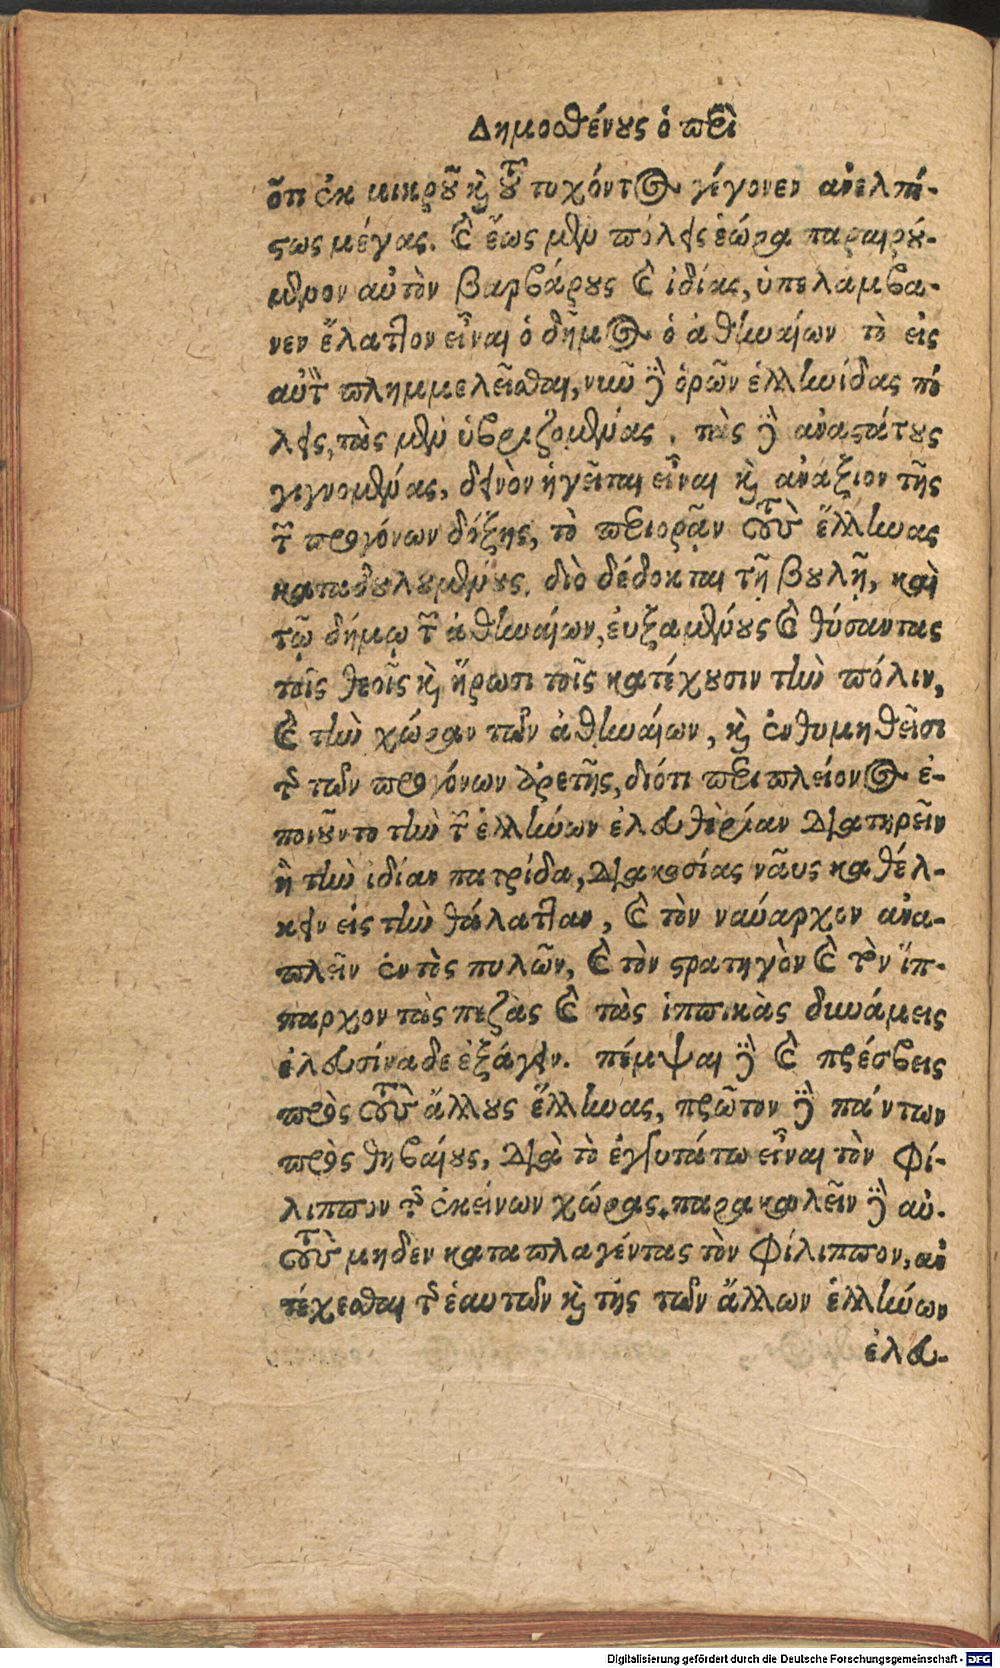 Δημοσθένους ὁ περὶ
ὅτι ἐκ μικροῦ καὶ τοῦ τυχόντος γέγονεν ἀνελπί-
στως μέγας. καὶ ἕως μὲν πόλεις ἑώρα παραιρού-
μενον αὐτὸν βαρβάρους καὶ ἰδίας, ὑπελάμβα-
νεν ἔλαττον εἶναι ὁ δῆμος ὁ ἀθηναίων τὸ εἰς
αὐτὸν πλημμελεῖσθαι, νῦν δὲ ὁρῶν ἑλληνίδας πό
λεις, τὰς μὲν ὑβριζομένας, τὰς δὲ ἀναστάτους
γιγνομένας, δεινὸν ἡγεῖται εἶναι καὶ ἀνάξιον τῆς
τῶν προγόνων δόξης, τὸ περιορᾷν τοὺς ἕλληνας
καταδουλουμένους, διὸ δέδοκται τῇ βουλῇ, καὶ
τῷ δήμῳ τῶν ἀθηναίων, ἐυξαμένους καὶ θύσαντας
τοῖς θεοῖς καὶ ἥρωσι τοῖς κατέχουσιν τὴν πόλιν,
καὶ τὴν χώραν τῶν ἀθηναίων, καὶ ἐνθυμηθεῖσι
τῆς τῶν προγόνων ἀρετῆς, διότι περὶ πλείονος ἐ-
ποιοῦντο τὴν τῶν ἑλλήνων ἐλευθερίαν διατηρεῖν
ἢ τὴν ἰδίαν πατρίδα, διακοσίας ναῦς καθέλ-
κειν εἰς τὴν θάλατταν, καὶ τὸν ναύαρχον ἀνα-
πλεῖν ἐντὸς πυλῶν, καὶ τὸν στρατηγὸν καὶ τὸν ἵπ-
παρχον τὰς πεζὰς καὶ τὰς ἱππικὰς δυνάμεις
ἐλευσίναδε ἐξάγειν. πέμψαι δὲ καὶ πρέσβεις
πρὸς τοὺς ἄλλους ἕλληνας, πρῶτον δὲ πάντων
πρὸς θηβαίους, διὰ τὸ ἐγγυτάτω εἶναι τὸν Φί-
λιππον τῆς ἐκείνων χώρας. παρακαλεῖν δὲ αὐ-
τοὺς μηδὲν καταπλαγέντας τὸν Φίλιππον, ἀν
τέχεσθαι τῆς ἑαυτῶν καὶ τῆς τῶν ἄλλων ἑλλήνων
ἐλευ-
Digitalisierung gefördert durch die Deutsche Forschungsgemeinschaft - DFG